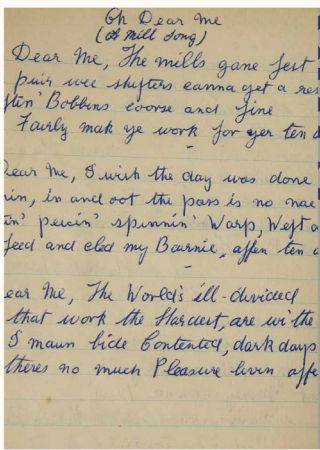 Oh Dear Me
(A Mill Song)
Dear Me, The mills gane fest
puir wee shifters canna get a res
ftin' Bobbins coorse and fine
Fairly mak ye work for yer ten d
Dear Me, I wish the day was done
nin, in and oot the pass is no nae
in' peicin' spinnin' Warp, Weft a
feed and cled my Bairnie, affen ten d
ear Me, The World's ill-divided
that work the Hardest, are wi the
I maun bide Contented, dark days
theres no much Pleasure livin affe